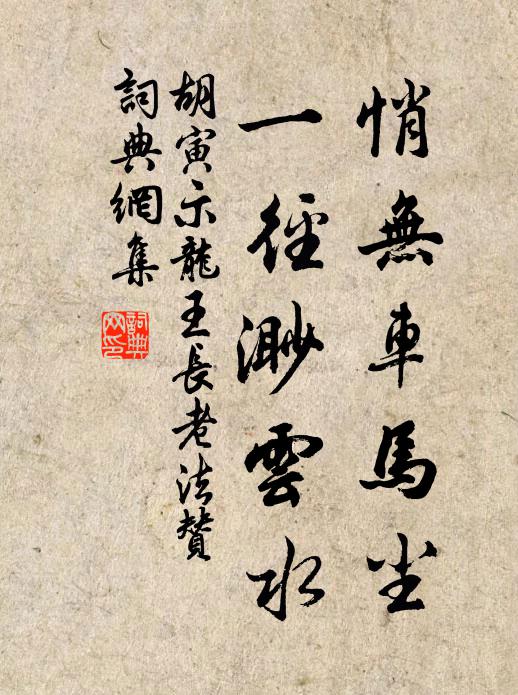 悄無車馬尘
一徑渺雲水
胡寅示龍王長老法贊
詞典網集
詞典網印